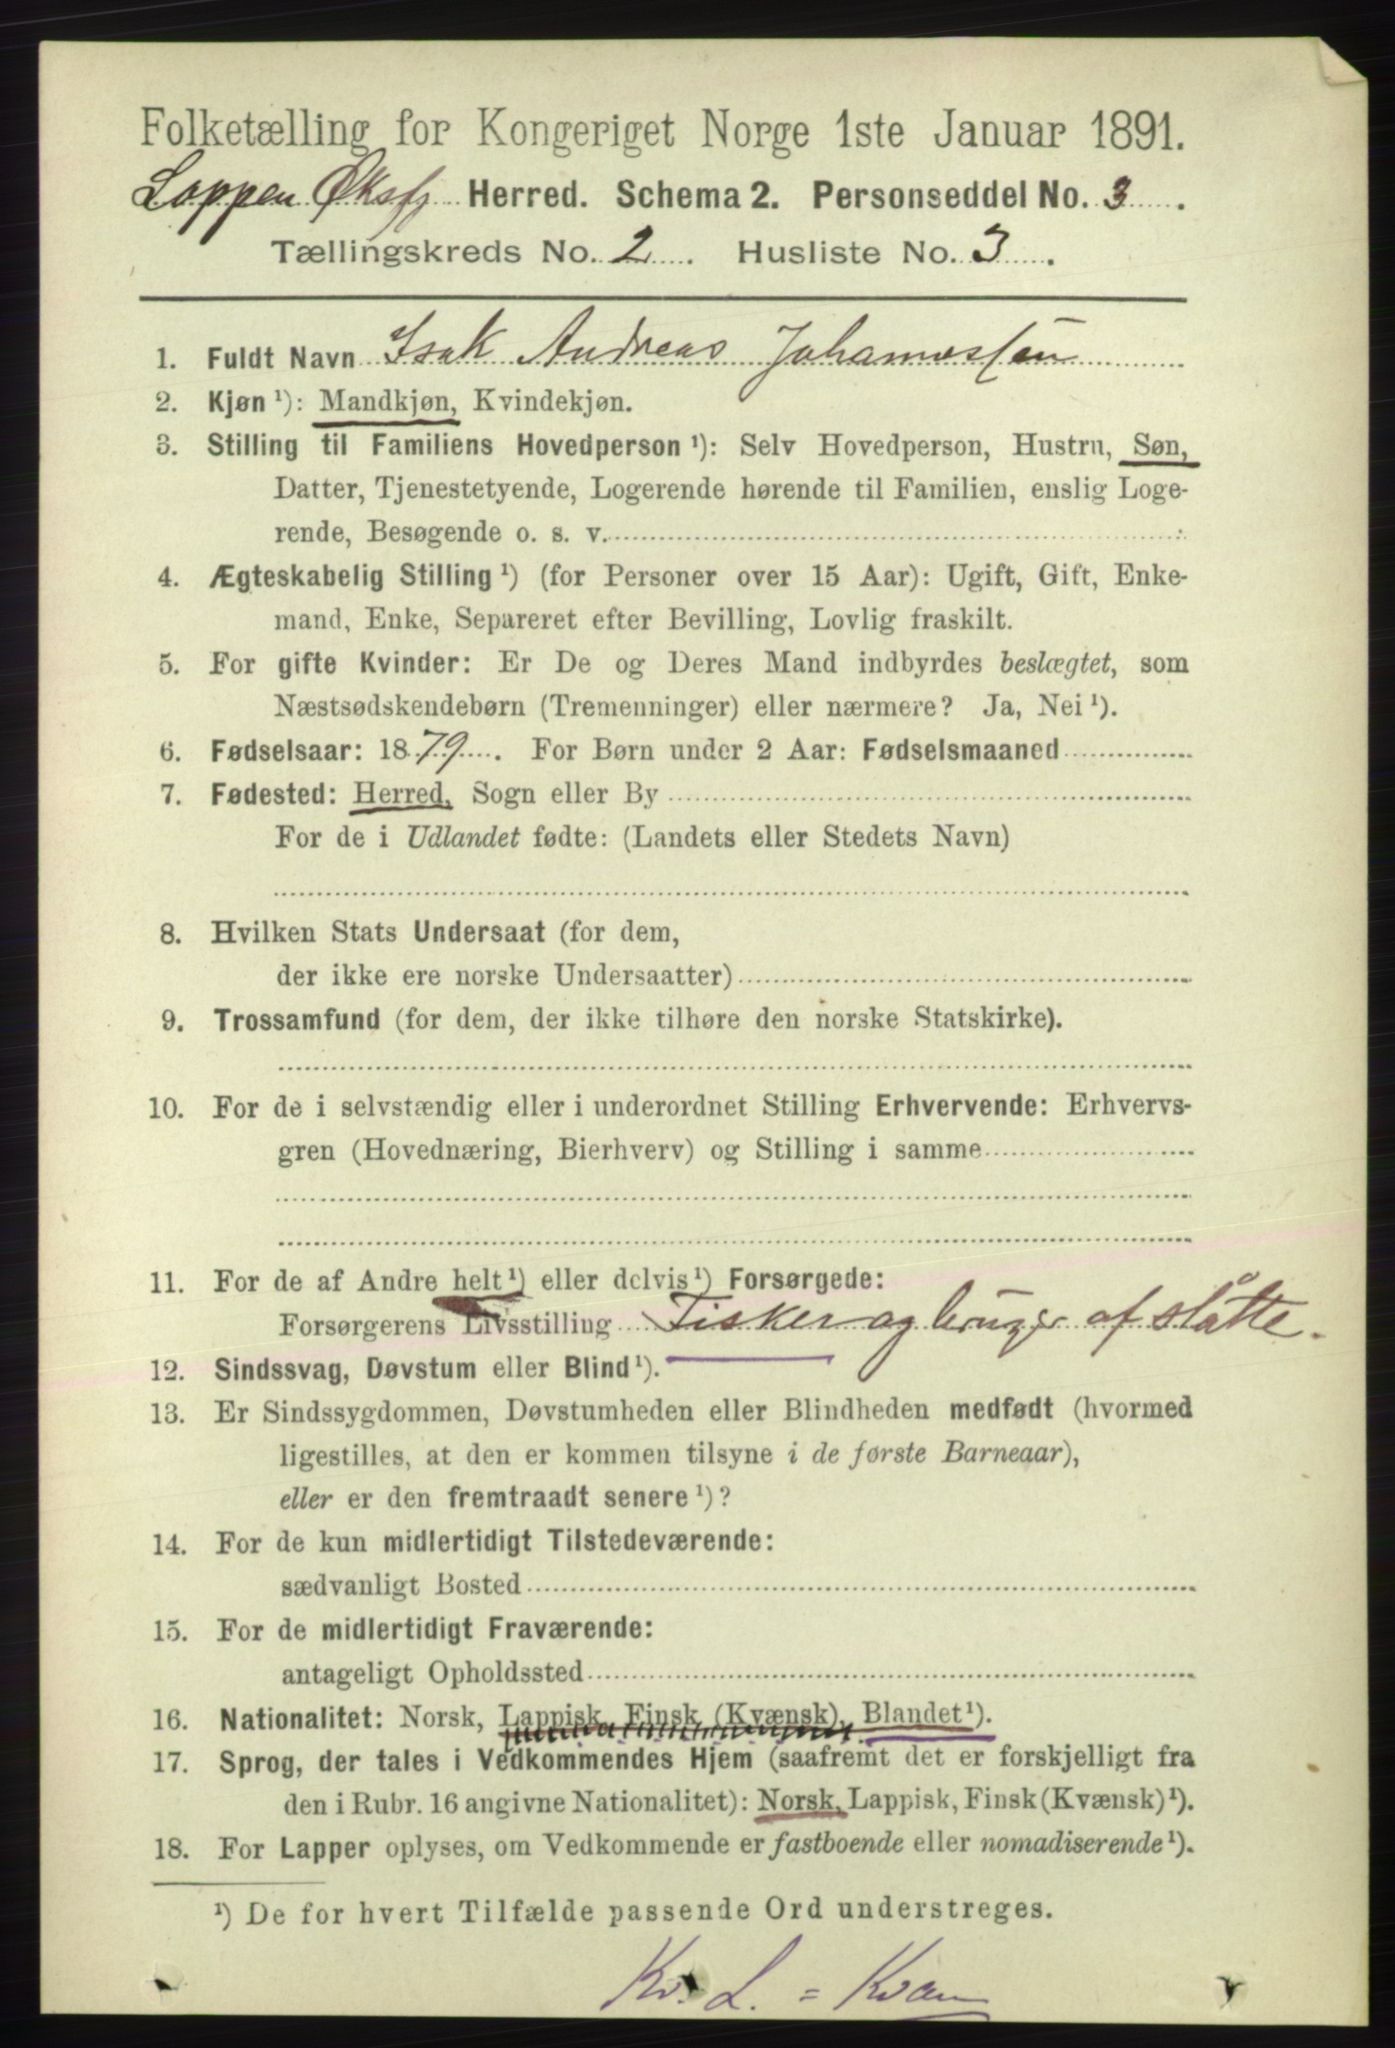 Folketælling for Kongeriget Norge 1ste Januar 1891.
Loppen Øksfj Herred. Schema 2. Personseddel No. 3.
Tællingskreds No. 2. Husliste No. 3.
1. Fuldt Navn Isak Andreas Johannessen
2. Kjøn ¹): Mandkjøn, Kvindekjøn.
3. Stilling til Familiens Hovedperson ¹): Selv Hovedperson, Hustru, Søn,
Datter, Tjenestetyende, Logerende hørende til Familien, enslig Loge-
rende, Besøgende o. s. v.
4. Ægteskabelig Stilling ¹) (for Personer over 15 Aar): Ugift, Gift, Enke-
mand, Enke, Separeret efter Bevilling, Lovlig fraskilt.
5. For gifte Kvinder: Er De og Deres Mand indbyrdes beslægtet, som
Næstsødskendebørn (Tremenninger) eller nærmere? Ja, Nei ¹).
6. Fødselsaar: 1879. For Børn under 2 Aar: Fødselsmaaned
7. Fødested: Herred, Sogn eller By
For de i Udlandet fødte: (Landets eller Stedets Navn)
8. Hvilken Stats Undersaat (for dem,
der ikke ere norske Undersaatter)
9. Trossamfund (for dem, der ikke tilhøre den norske Statskirke).
10. For de i selvstændig eller i underordnet Stilling Erhvervende: Erhvervs-
gren (Hovednæring, Bierhverv) og Stilling i samme
11. For de af Andre helt ¹) eller delvis ¹) Forsørgede:
Forsørgerens Livsstilling Fisker og bruger af slåtte.
12. Sindssvag, Døvstum eller Blind ¹).
13. Er Sindssygdommen, Døvstumheden eller Blindheden medfødt (hvormed
ligestilles, at den er kommen tilsyne i de første Barneaar),
eller er den fremtraadt senere ¹)?
14. For de kun midlertidigt Tilstedeværende:
sædvanligt Bosted
15. For de midlertidigt Fraværende:
antageligt Opholdssted
16. Nationalitet: Norsk, Lappisk, Finsk (Kvænsk), Blandet ¹).
17. Sprog, der tales i Vedkommendes Hjem (saafremt det er forskjelligt fra
den i Rubr. 16 angivne Nationalitet): Norsk, Lappisk, Finsk (Kvænsk) ¹).
18. For Lapper oplyses, om Vedkommende er fastboende eller nomadiserende ¹).
¹) De for hvert Tilfælde passende Ord understreges.
Kv. L. = Kvæn